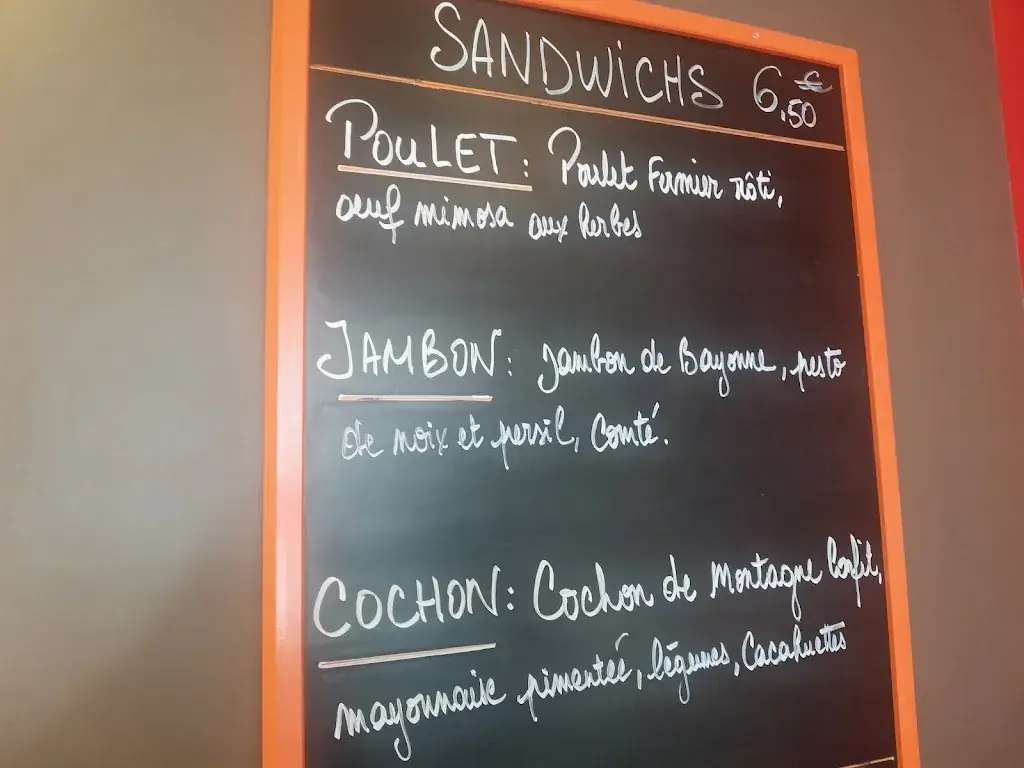 SANDWICHS 6,50€
POULET: Poulet Fermier rôti,
œuf mimosa aux herbes
JAMBON: Jambon de Bayonne, pesto
de noix et persil, Comté.
COCHON: Cochon de Montagne Confit,
mayonnaise pimenteé, légumes, Cacahuettes